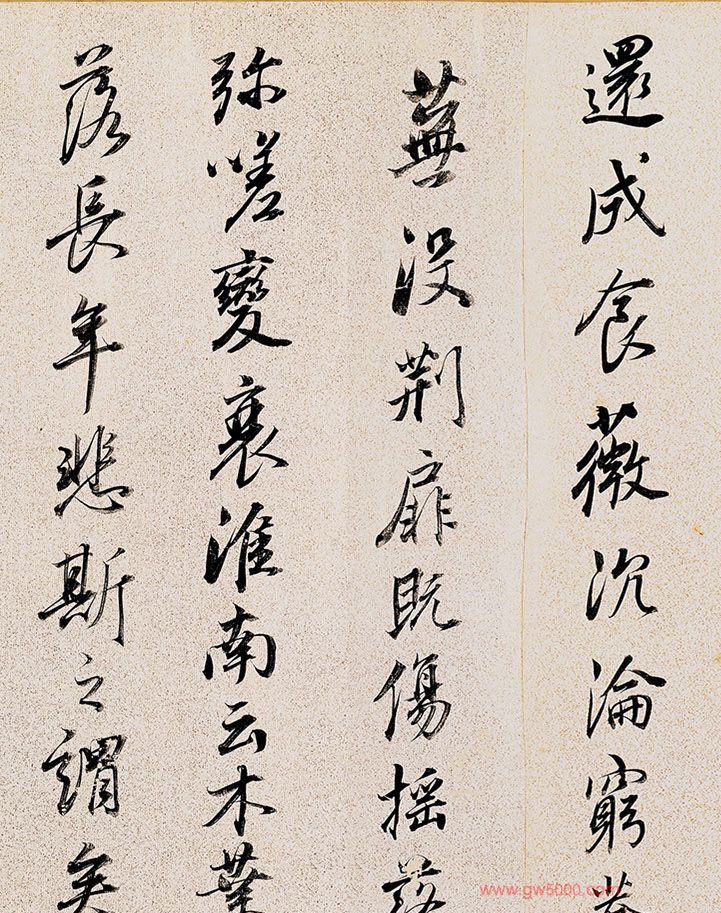 還成食薇沉淪窮巷
蕪没荆扉既傷搖落
弥嗟變衰淮南云木葉
落長年悲斯之謂矣
www.gw5000.com